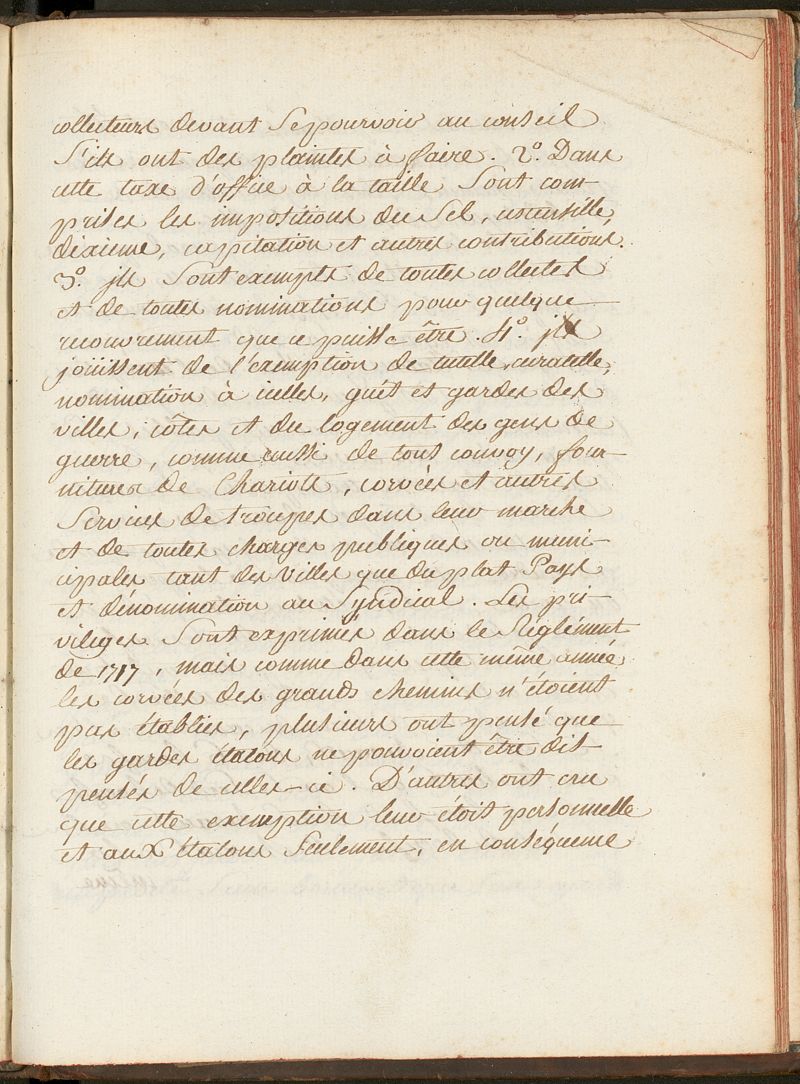 collecteurs devant Se pourvoir au conseil
S'ils ont des plaintes à faire. 2.° Dans
cette taxe d'office à la taille Sont com-
prises les impositions du Sel, ustensille,
dixieme, capitation et autres contributions.
3.° jls Sont exempts de toutes collectes
et de toutes nominations pour quelque
recouvrement que ce puisse être. 4.° jls
joüissent de l'exemption de tutelle, curatelle,
nomination à icelles, guêt et gardes des
villes, côtes et du logement des gens de
guerre, comme aussi de tous convoy, four-
nitures de Chariots, corvées et autres
Services de troupes dans leur marche
et de toutes charges publiques ou muni-
cipales tant des Villes que du plat Pays
et dénomination au Syndical. Les pri-
vileges Sont exprimés dans le Réglement
de 1717, mais comme dans cette même année
les corvées des grands chemins n'étoient
pas établies, plusieurs ont pensé que
les gardes étalons ne pouvoient être dis-
pensés de celles-ci. D'autres ont cru
que cette exemption leur étoit personnelle
et aux étalons Seulement, en conséquence